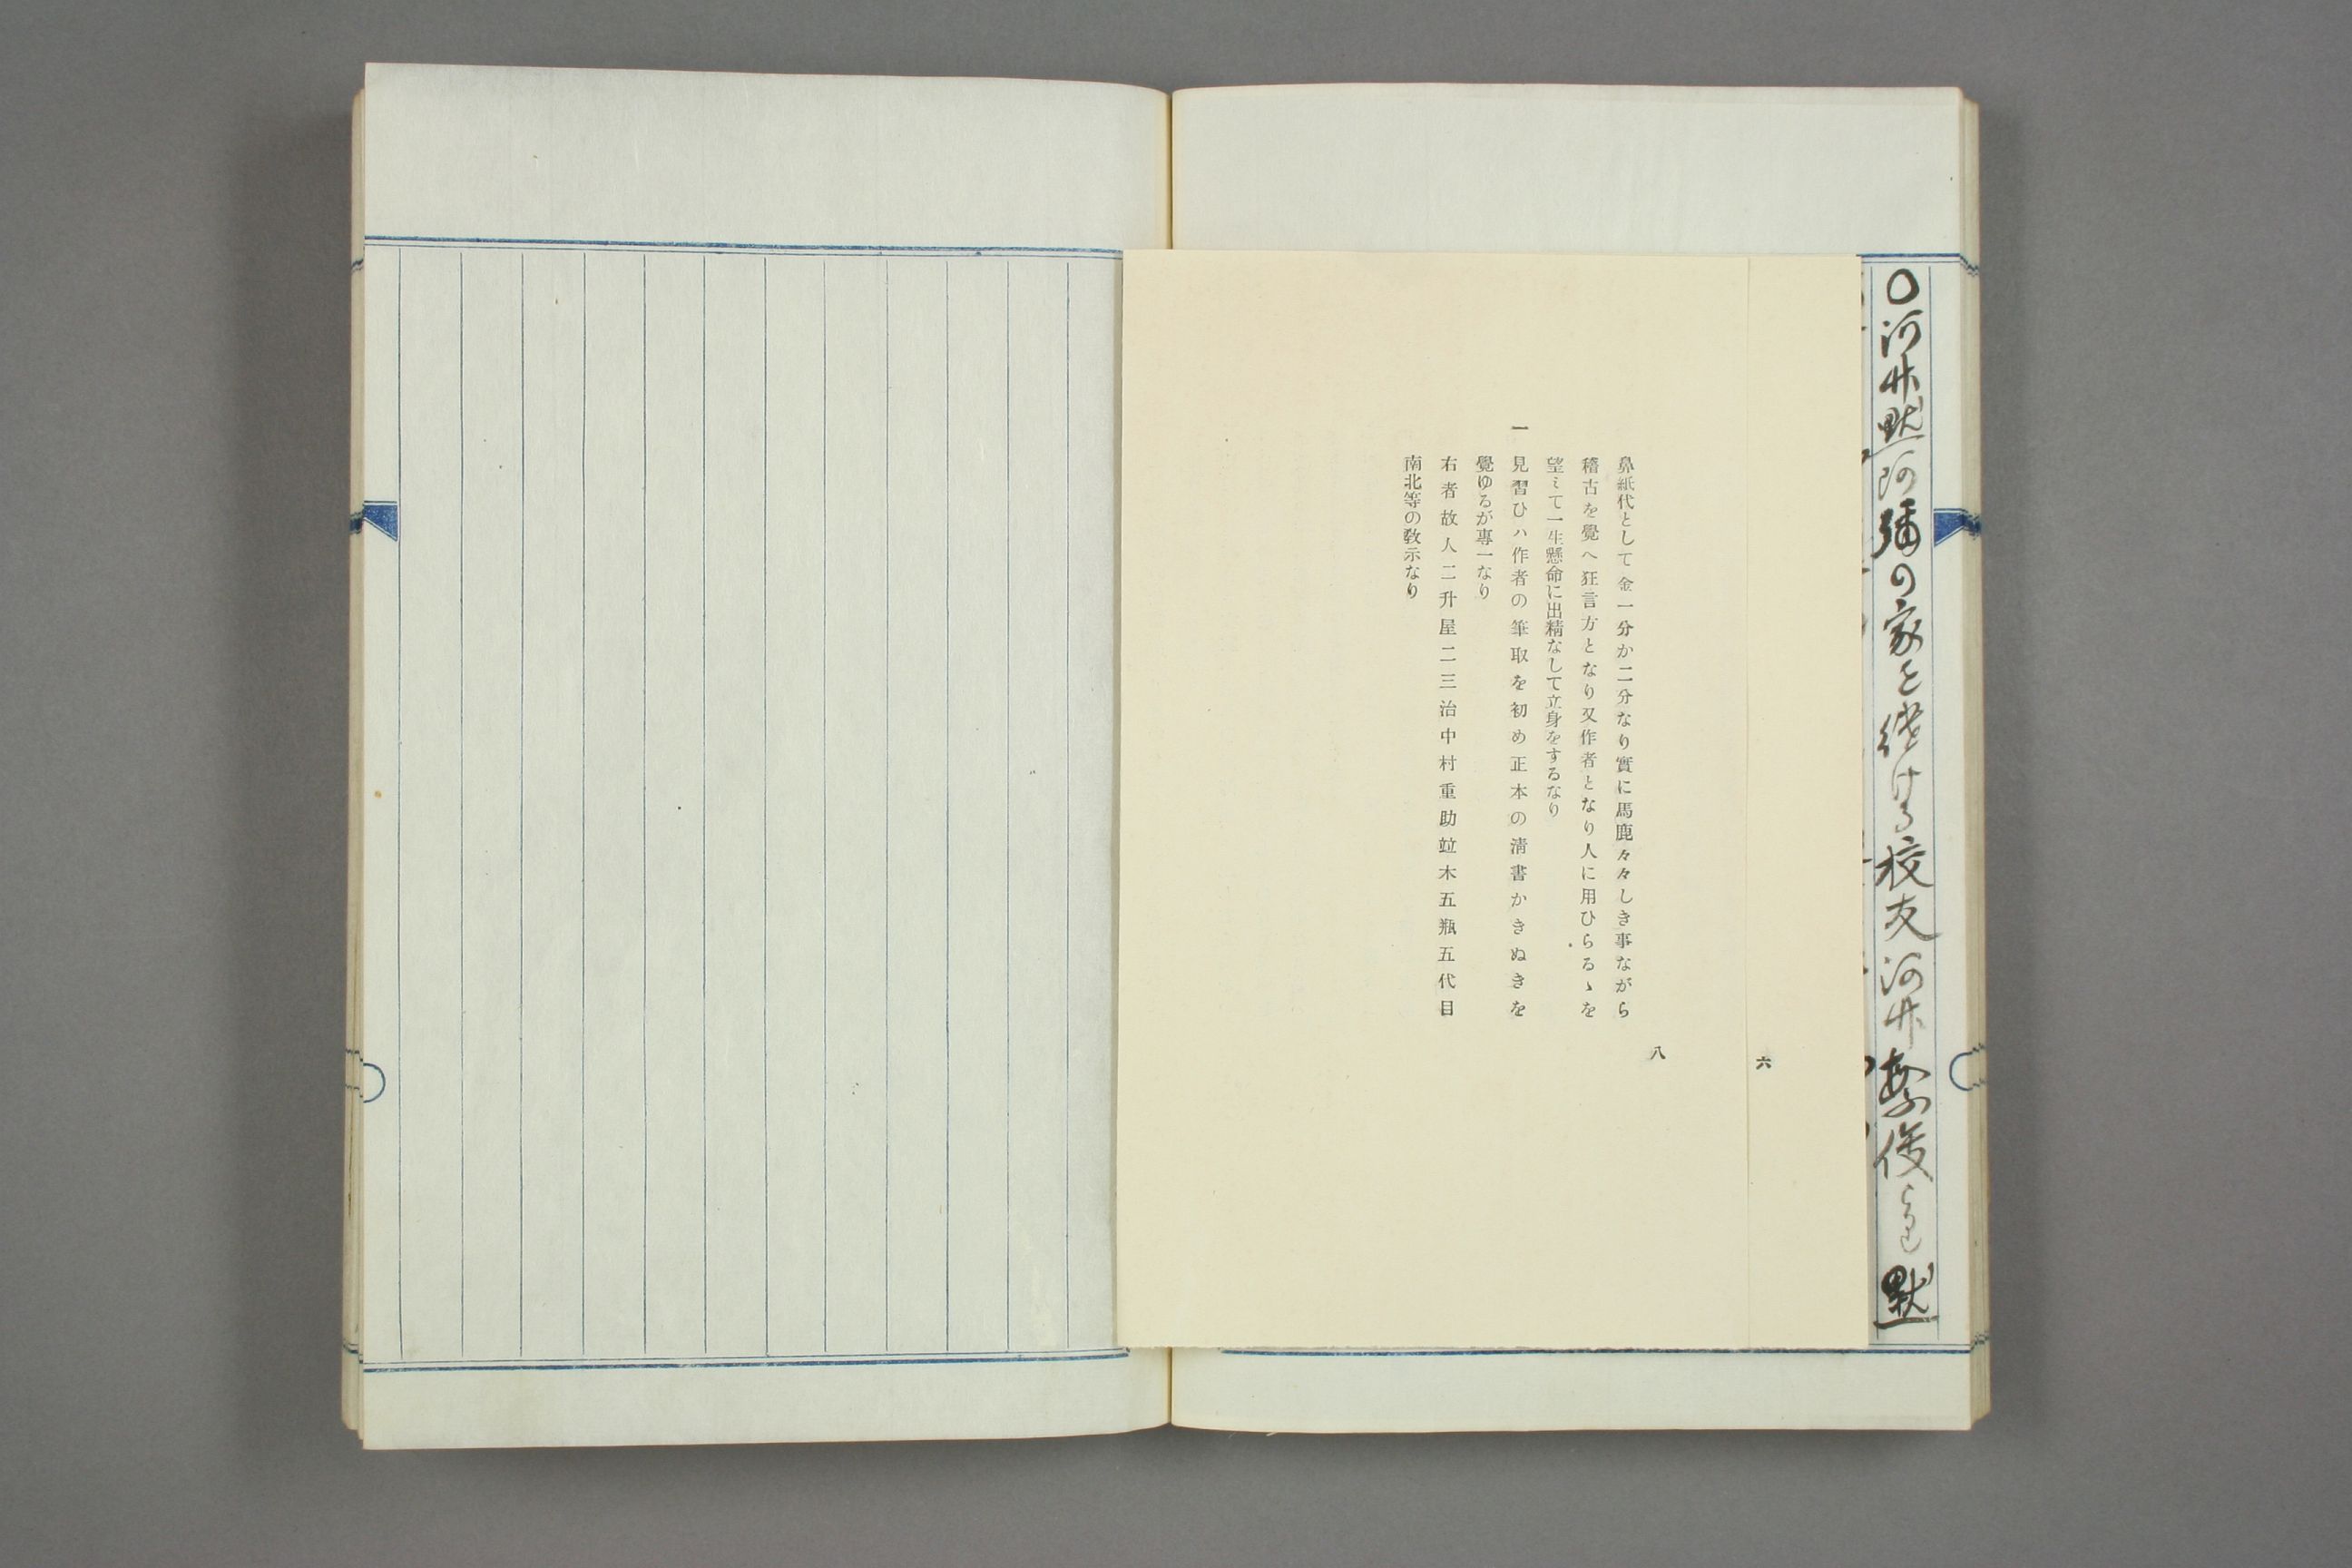 〇河竹默阿彌の家を継ける校友河竹繁俊くんと默
六
八
鼻紙代として金一分か二分なり實に馬鹿々々しき事ながら
稽古を覺へ狂言方となり又作者となり人に用ひらるゝを
望ミて一生懸命に出精なして立身をするなり
一 見習ひハ作者の筆取を初め正本の淸書かきぬきを
覺ゆるが專一なり
右者故人二升屋二三治中村重助竝木五瓶五代目
南北等の敎示なり